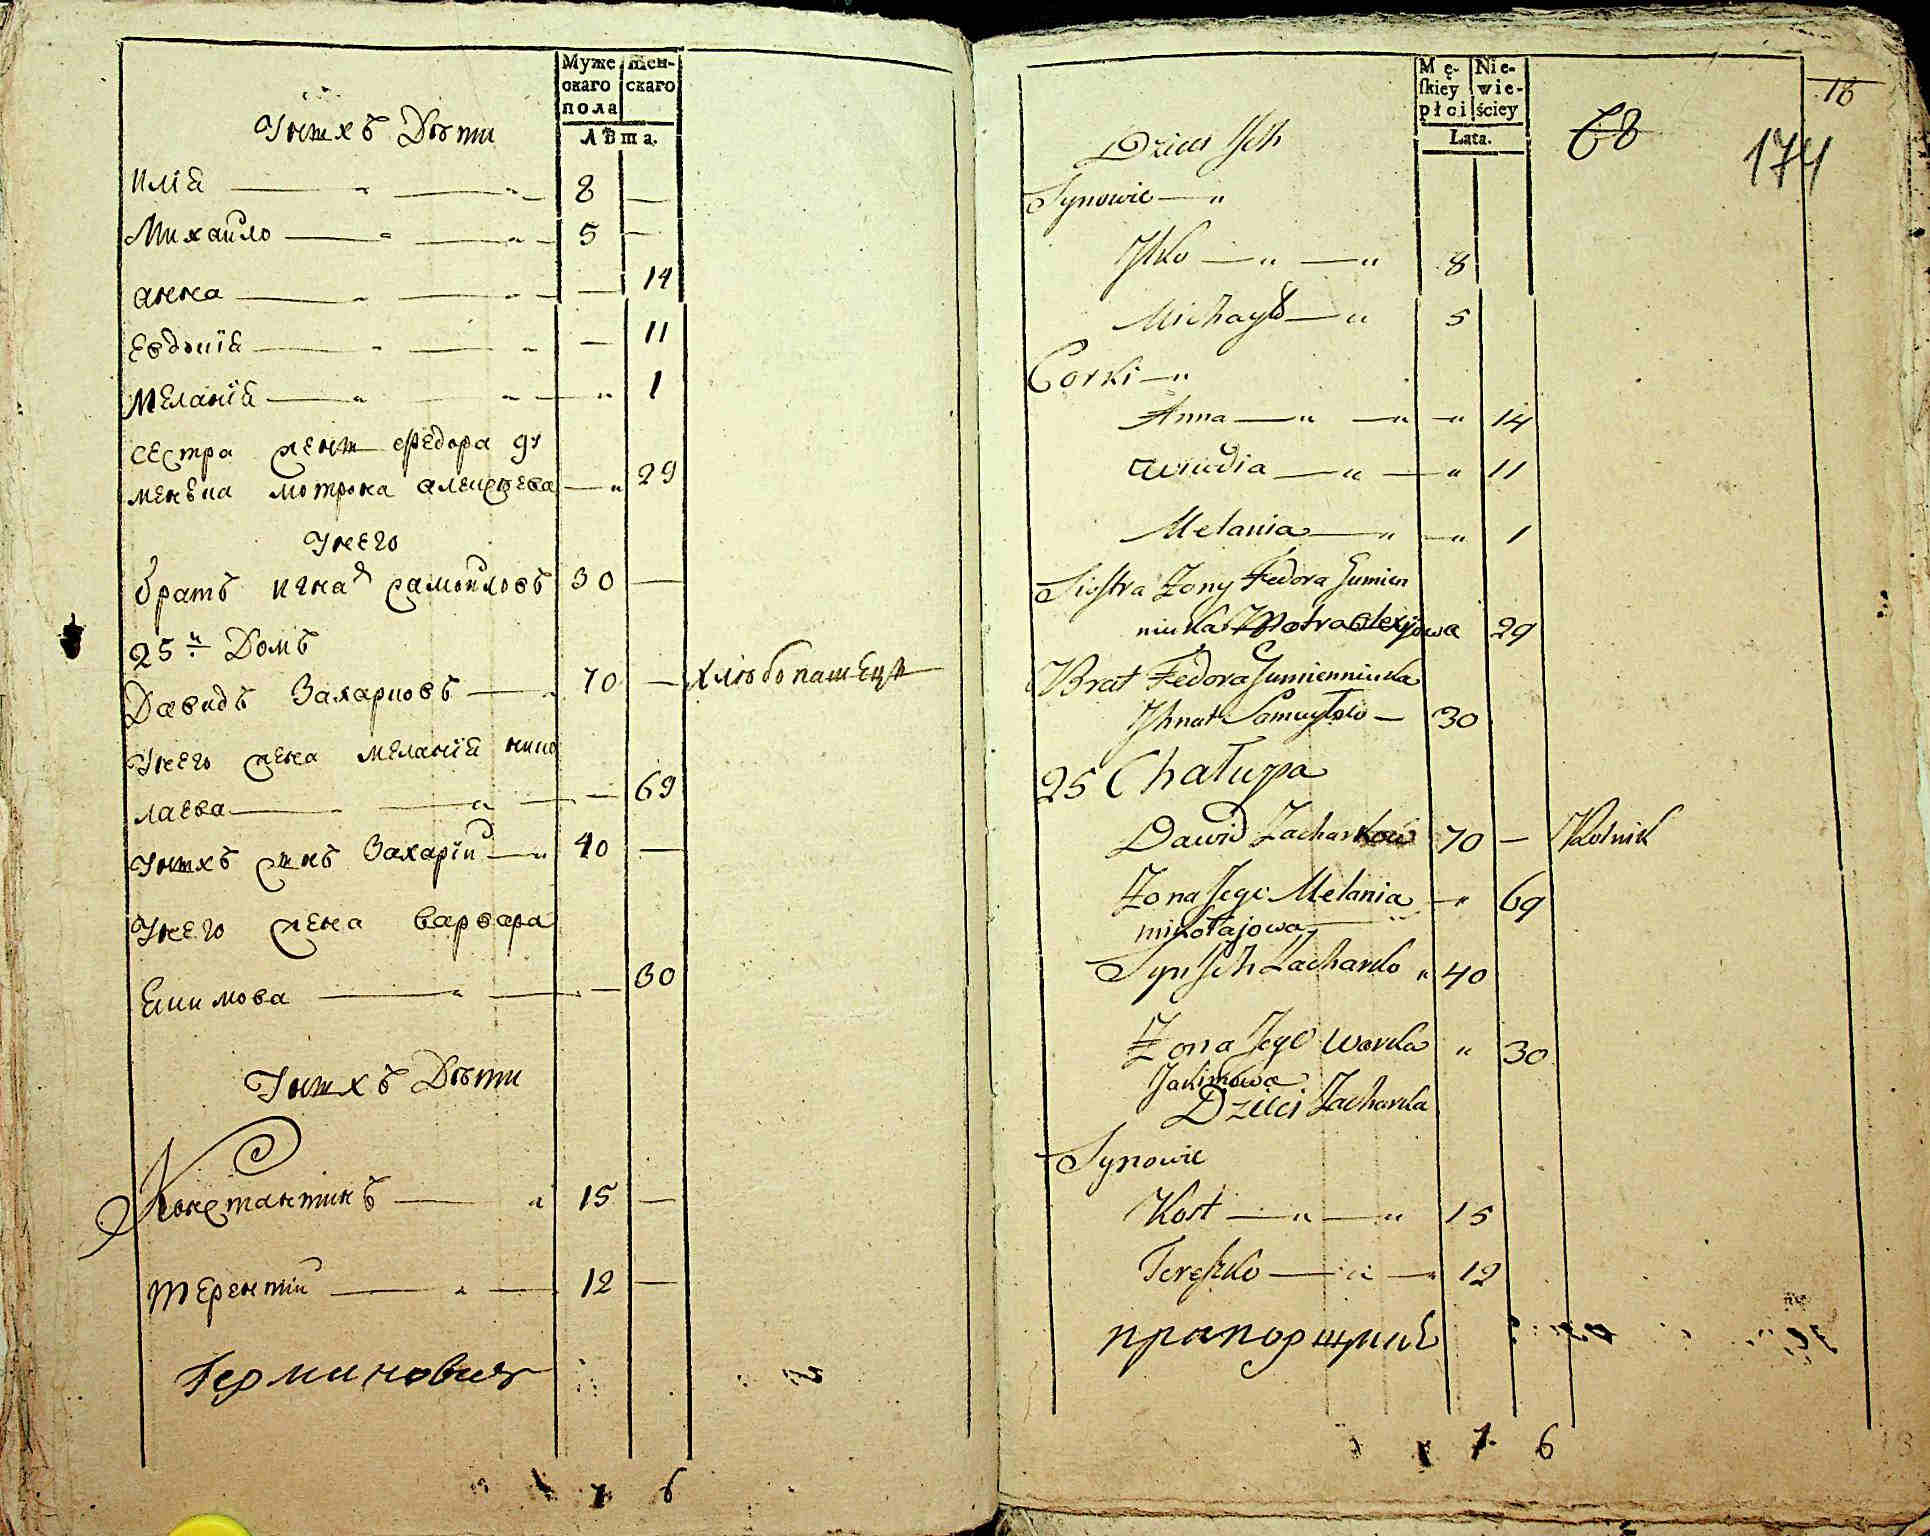 Муже
скаго
пола
Жен-
скаго
Лѣта.
У нихъ Дѣти
Илія 8
Михайло 5
Анна 14
Евдокія 11
Меланія 1
сестра жены Федора Гу
менюка Мотрона Алексѣева 29
У него
братъ Игнат Самойловъ 30
25й Домъ
Давидъ Захариовъ 70 хлѣбопашецъ
У него жена Меланія Нико
лаева 69
У нихъ сынъ Захарій 40
У него жена Варвара
Екимова 30
У нихъ Дѣти
Константинъ 15
Терентій 12
7 6
16
Mę-
skiey
płci
Nie-
wie-
ściey
Lata.
68
174
Dzieci Ich
Synowie
Ilko 8
Michayło 5
Corki
Anna 14
Awdia 11
Melania 1
Siostra Żony Fedora Humien
niuka Motra Alexijowa 29
Brat Fedora Humienniuka
Ihnat Samuyłow 30
25 Chałupa
Dawid Zacharków 70 Rolnik
Żona Jego Melania 69
mikołajowa
Syn Ich Zacharko 40
Żona Jego Warka 30
Jakimowa
Dzieci Zacharka
Synowie
Kost 15
Tereszko 12
прапорщикъ
7 6